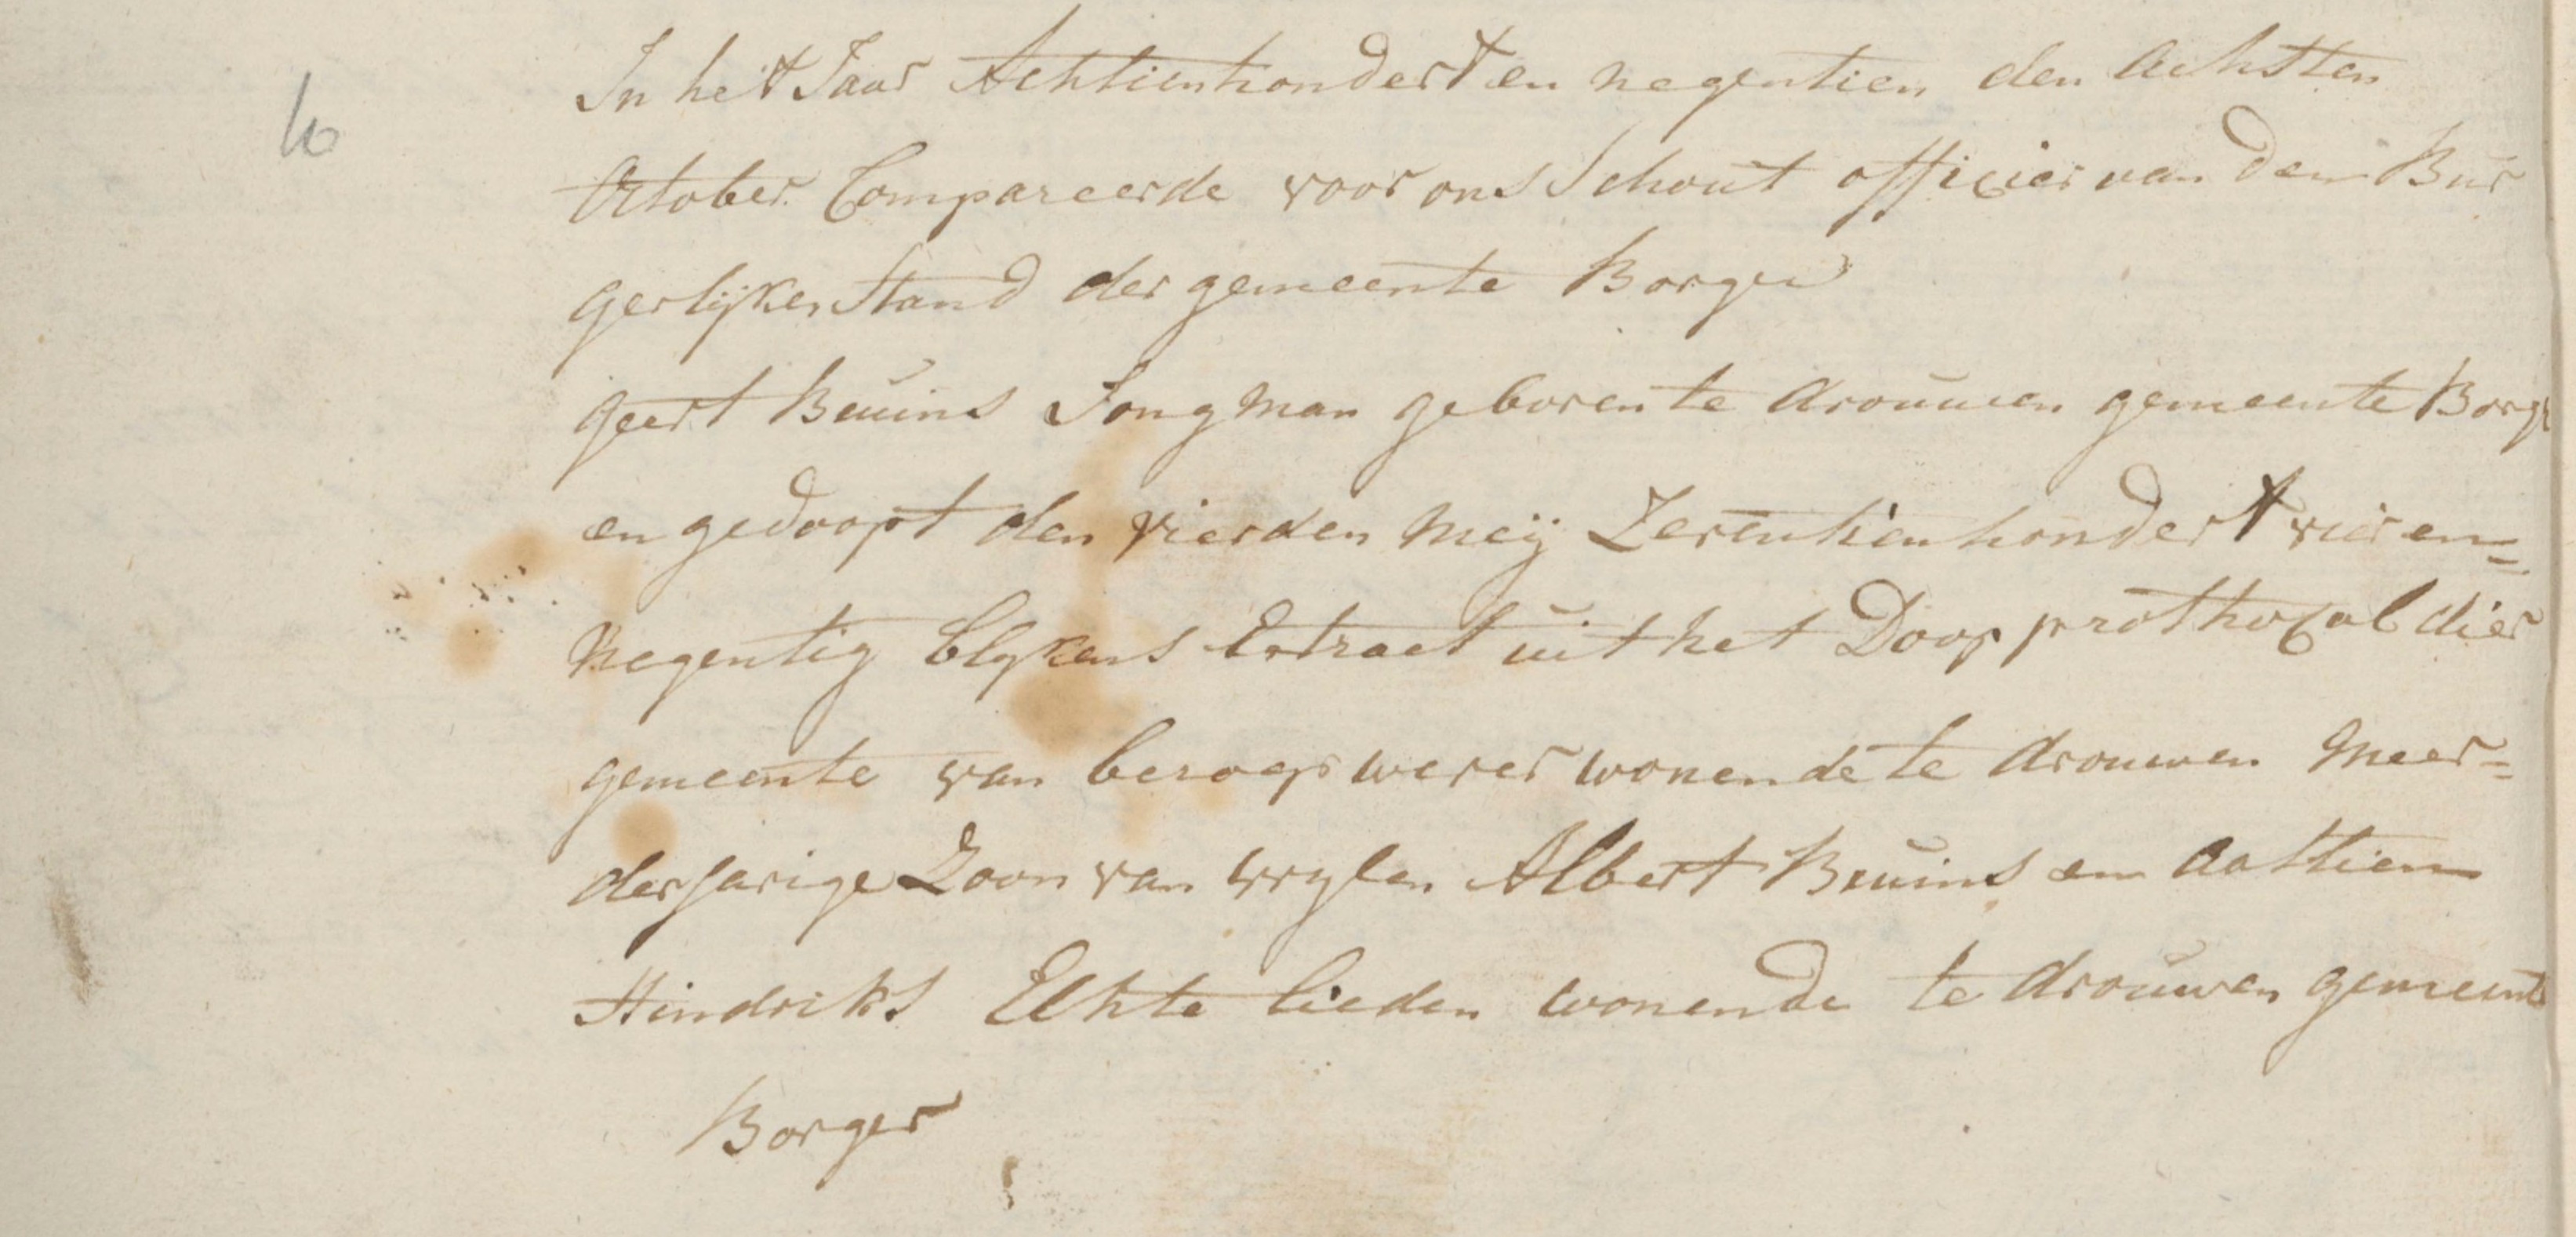 10
In het Jaar Achtienhondert en negentien den Achsten
October Compareerde voor ons Schout officier van den Bur
gerlijken Stand der gemeente Borger
geert Bruins Jongman geboren te drouwen gemeente Borge
en gedoopt den vierden Meij Zeventienhondert vier en=
Negentig blykens Extract uit het Doop prothocol dier
gemeente van beroep wever wonende te drouwen Meer=
derjarige Zoon van wylen Albert Bruins en Aaltien
Hindriks Echte lieden wonende te drouwen gemeente
Borger